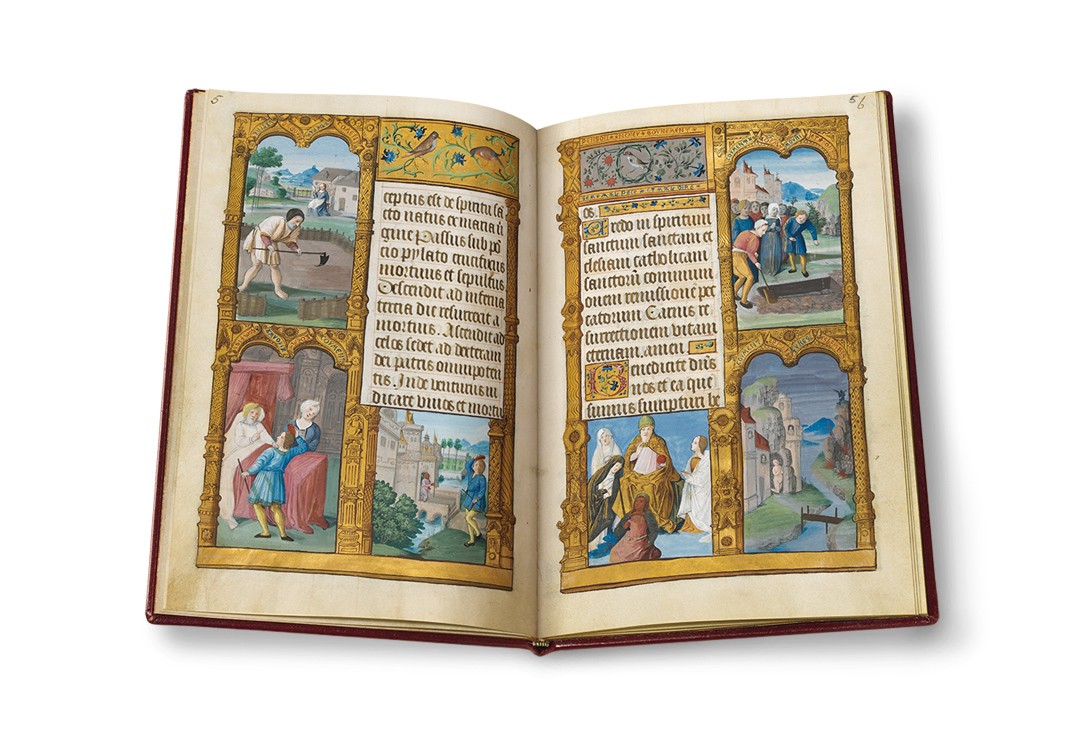 5
ceptus est de spiritu sa
cto natus ex maria ũ
gine Passus sub põ
cio pylato crucifixus
mortuus et sepultus
Descendit ad inferna
tercia die resurrexit a
mortuis. Ascendit ad
celos sedet ad dexteram
dei patris omnipoten
tis. Inde venturus iu
dicare vivos et mortu
56
os.
Credo in spiritum
sanctum sanctam ec
clesiam catholicam
sanctorũ commun
ionem remissionẽ pec
catorum Carnis re
surrectionem vitam
eternam. amen.
Benedicite dñs
nos et ea que
sumus sumpturi be